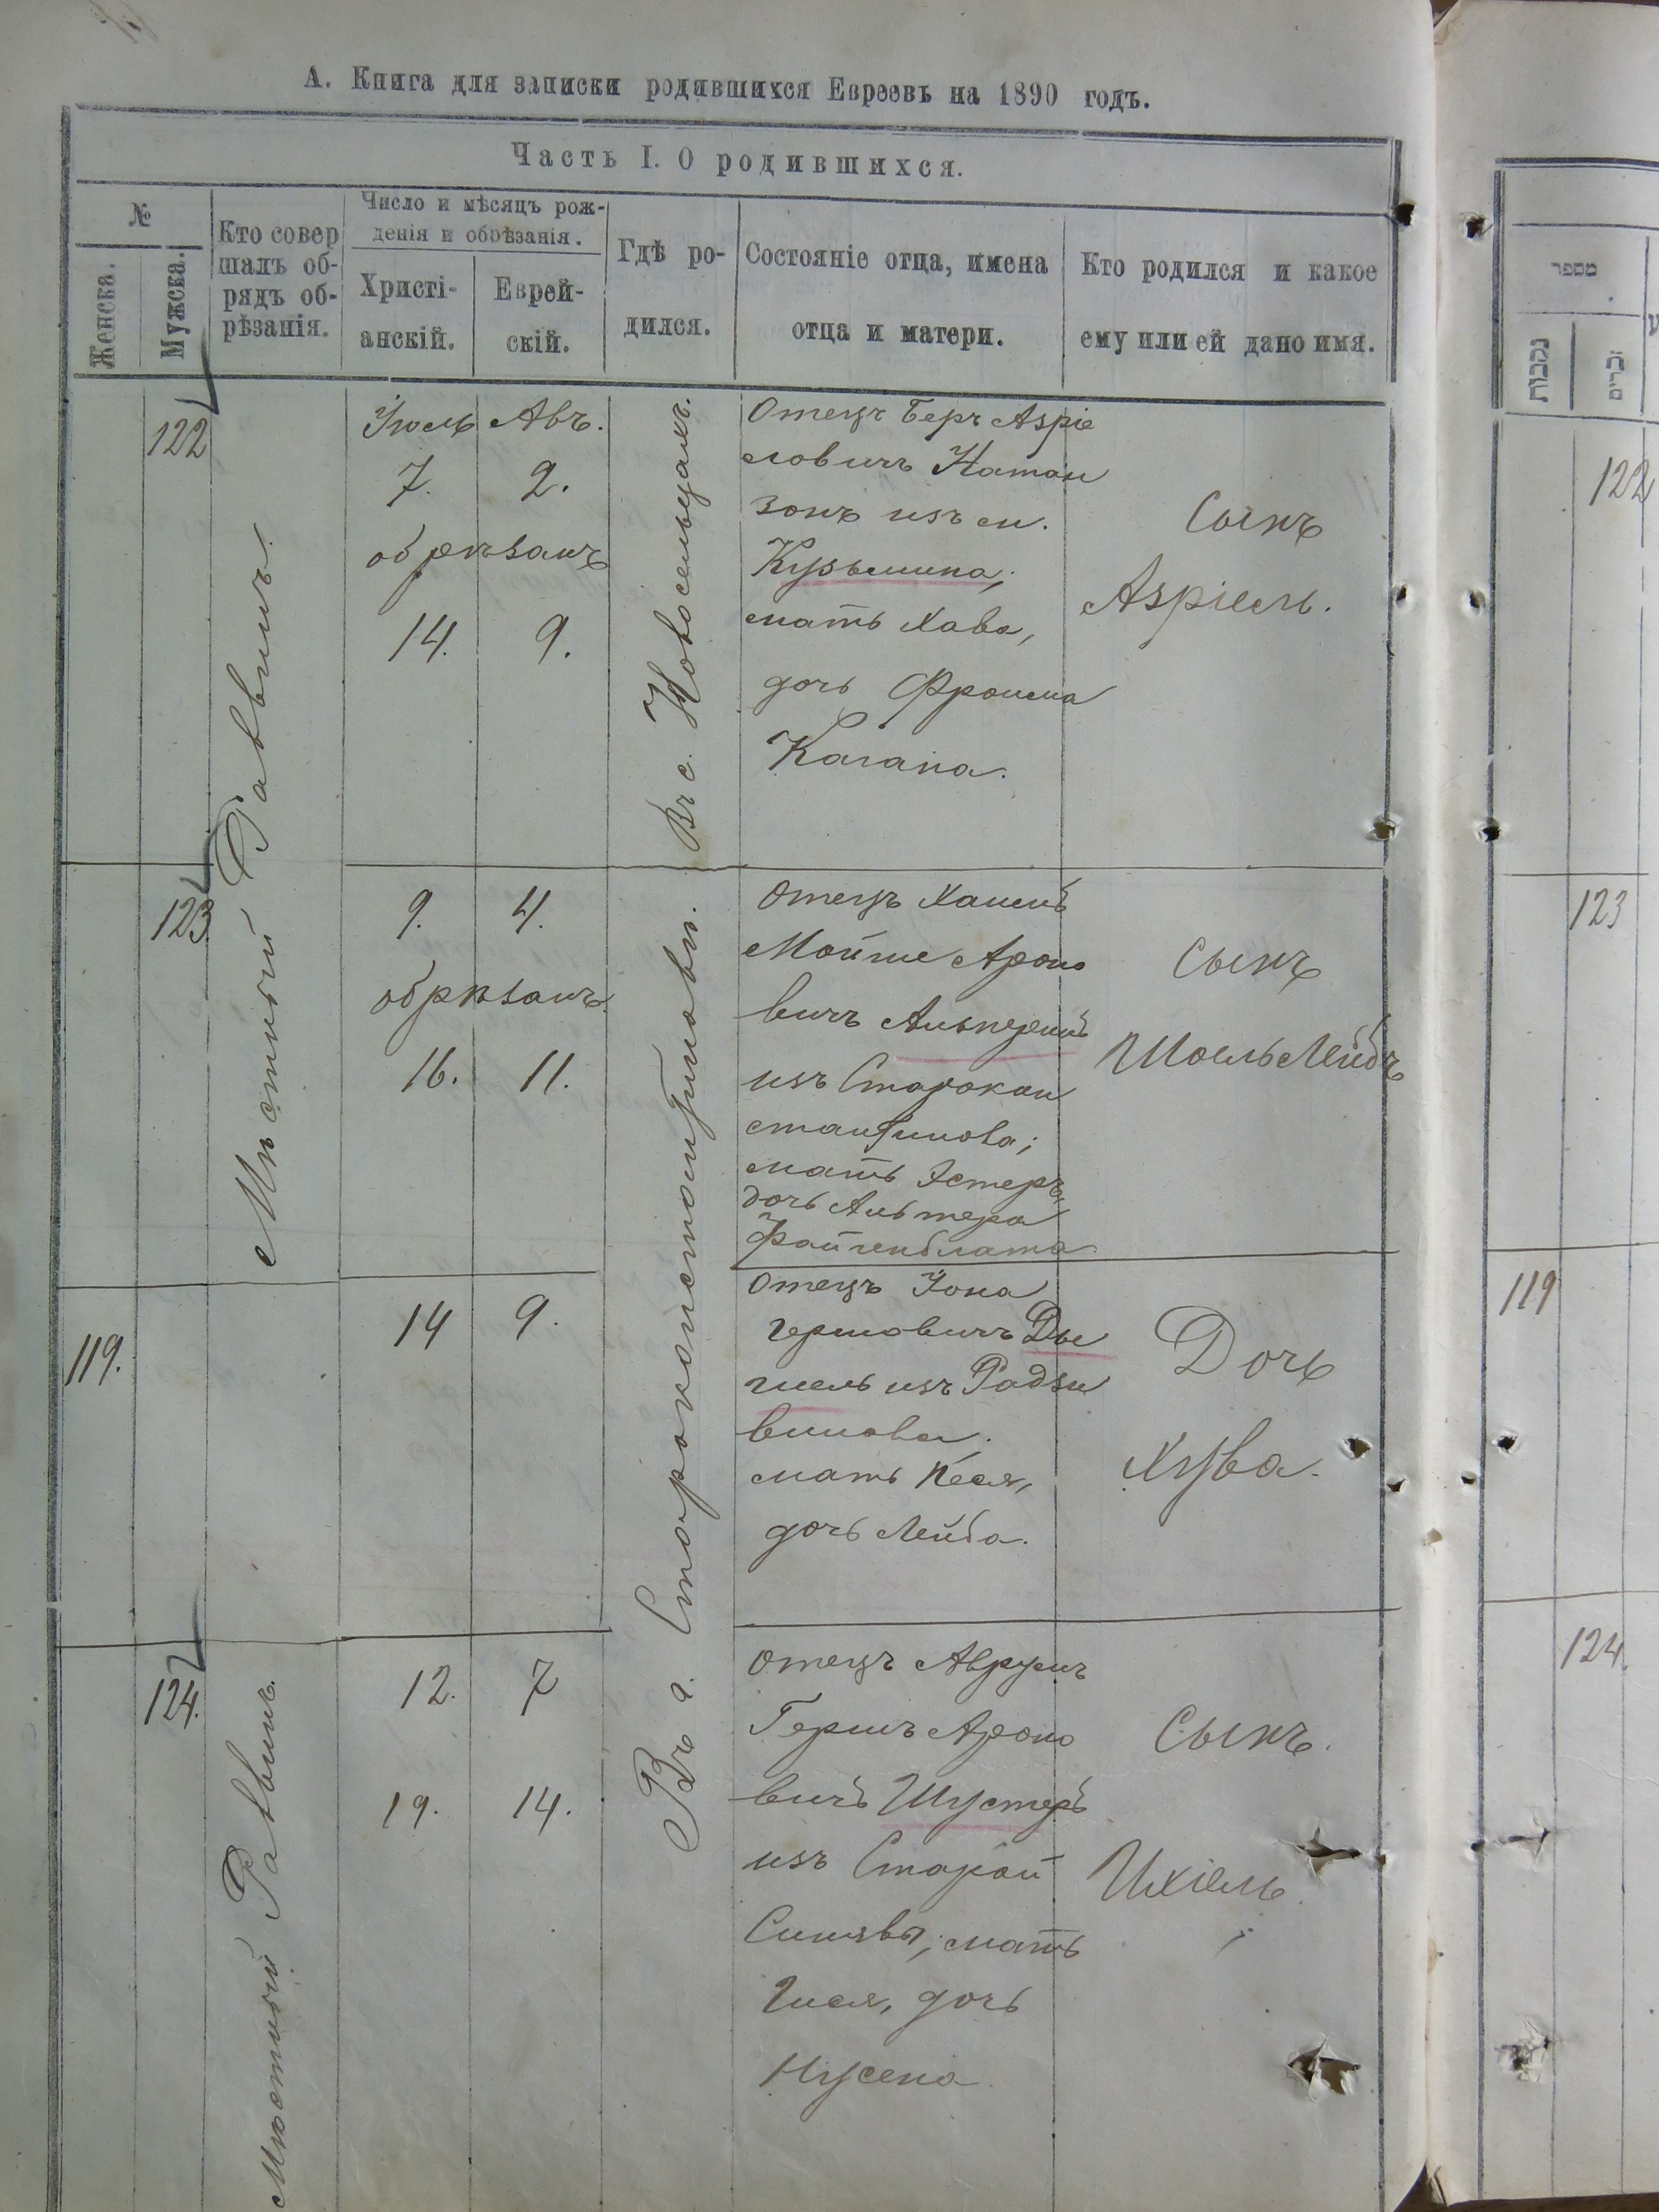 А. Книга для записки родившихся Евреевъ на 1890 годъ.
Часть I. О родившихся.
№
Женска.
Мужска.
Кто совер
шалъ об-
рядъ об-
рѣзанія.
Число и мѣсяцъ рож-
денія и обрѣзанія.
Христі-
анскій.
Еврей-
скій.
Гдѣ ро-
дился.
Состояніе отца, имена
отца и матери.
Кто родился и какое
ему или ей дано имя.
122
Мѣстный Раввинъ.
Іюль Авъ.
7. 2.
обрѣзанъ
14. 9.
Въ с. Новосельцахъ.
Отецъ Беръ Азріе
ловичъ Натан
зонъ изъ м.
Кузьмина;
мать Хава,
дочь Фроима
Кагана.
Сынъ
Азріель.
123
9. 4.
обрѣзанъ
16. 11.
Въ г. Староконстантиновѣ.
Отецъ Хаимъ
МойшеАроно
вичъ
изъ Старокон
стантинова;
мать Эстеръ,
дочь Альтера
Файгенблата.
Сынъ
Шоель Лейбъ
119.
14 9.
Отецъ Іона
Гершовичъ
изъ Радзи
вилова;
мать Песя,
дочь Лейба.
Дочь
Хува.
124.
Мѣстный Раввинъ.
12. 7
19. 14.
Отецъ Аврумъ
Гершъ Ароно
вичъ Шустеръ
изъ Старой
Синявы; мать
дочь
Нусена
Сынъ.
Ихіель.
מספר
נקבות
זכרים
122
123
119
124.